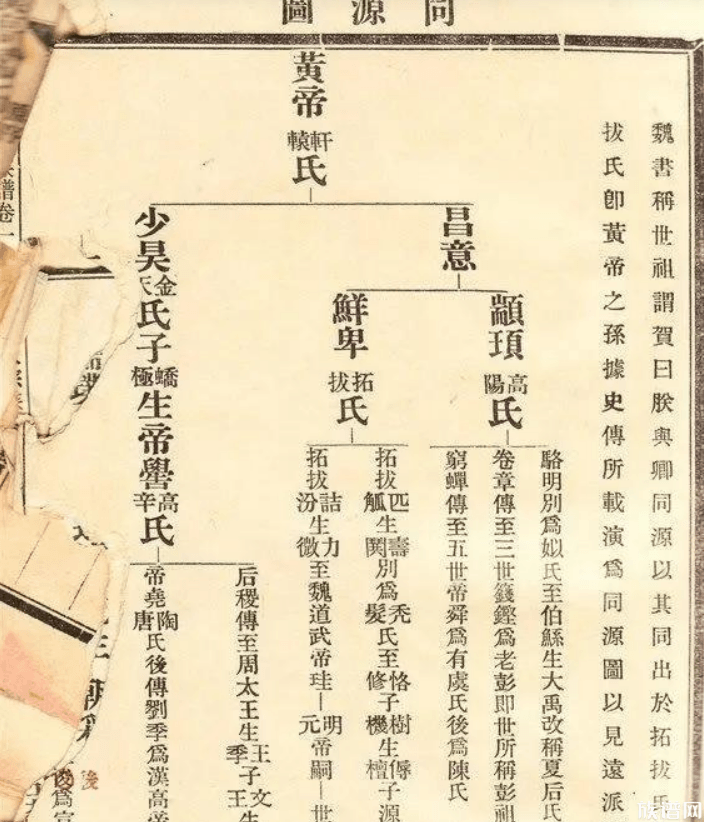 同源圖
魏書稱世祖謂賀曰朕與卿同源以其同出於拓拔氏
拔氏卽黃帝之孫據史傳所載演爲同源圖以見遠派
黃帝軒轅氏
昌意
顓頊高陽氏
駱明別爲姒氏至伯鯀生大禹改稱夏后氏
卷章傳至三世籛鏗爲老彭卽世所稱彭祖
窮蟬傳至五世帝舜爲有虞氏後爲陳氏
鮮卑拓拔氏
拓拔匹觚生壽闐別爲禿髮氏至恪修子樹機生傉檀子源
拓拔詰汾生力微至魏道武帝珪明元帝嗣世
少昊金天氏子蟜極生帝嚳高辛氏
后稷傳至周太王生王季子文王生
帝堯陶唐氏後傳劉季爲漢高帝
譜卷一
後
族谱网